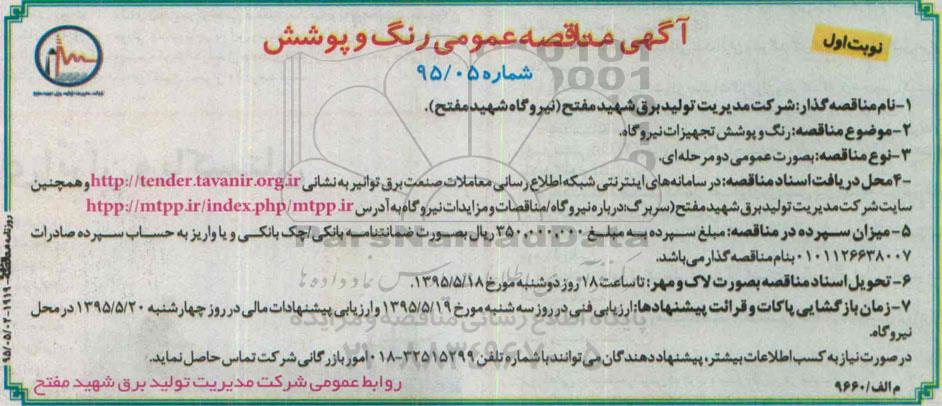 آگهی مناقصه عمومی رنگ و پوشش
نوبت اول
شماره ۹۵/۰۵
۱-نام مناقصه گذار: شرکت مدیریت تولید برق شهید مفتح (نیروگاه شهید مفتح).
۲-موضوع مناقصه: رنگ و پوشش تجهیزات نیروگاه.
۳-نوع مناقصه: بصورت عمومی دو مرحله ای.
۴-محل دریافت اسناد مناقصه: در سامانه های اینترنتی شبکه اطلاع رسانی معاملات صنعت برق توانیر به نشانی http://tender.tavanir.org.ir و همچنین
سایت شرکت مدیریت تولید برق شهید مفتح (سربرگ: درباره نیروگاه/مناقصات و مزایدات نیروگاه به آدرس htpp://mtpp.ir/index.php/mtpp.ir
۵-میزان سپرده در مناقصه: مبلغ سپرده به مبلغ ۳۵۰,۰۰۰,۰۰۰ ریال بصورت ضمانتنامه بانکی/چک بانکی و یا واریز به حساب سپرده صادرات
۰۱۰۱۱۲۶۶۳۸۰۰۷ بنام مناقصه گذار می باشد.
۶-تحویل اسناد مناقصه بصورت لاک و مهر: تا ساعت ۱۸ روز دوشنبه مورخ ۱۳۹۵/۵/۱۸.
۷-زمان بازگشایی پاکات و قرائت پیشنهادها: ارزیابی فنی در روز سه شنبه مورخ ۱۳۹۵/۵/۱۹ و ارزیابی پیشنهادات مالی در روز چهارشنبه ۱۳۹۵/۵/۲۰ در محل
نیروگاه.
در صورت نیاز به کسب اطلاعات بیشتر، پیشنهاد دهندگان می توانند با شماره تلفن ۳۲۵۱۵۲۹۹-۰۱۸ امور بازرگانی شرکت تماس حاصل نماید.
روابط عمومی شرکت مدیریت تولید برق شهید مفتح
م الف/۹۶۶۰
ParsNamadData
پایگاه اطلاع رسانی مناقصه و مزایده